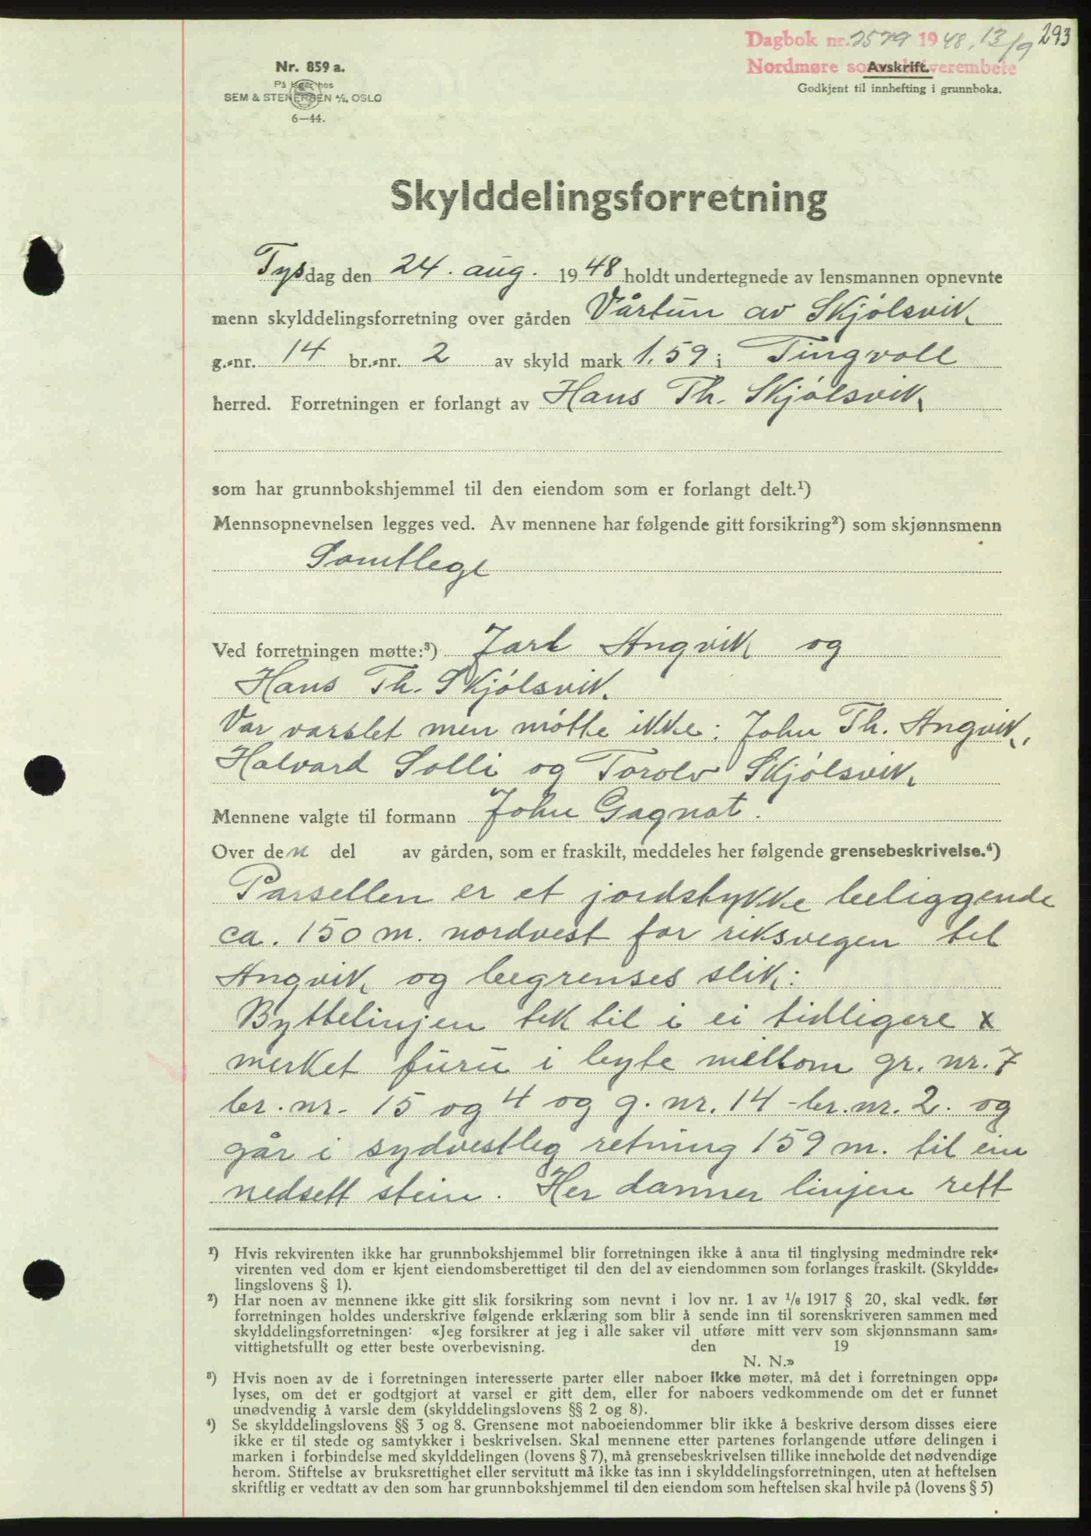 293
Dagbok nr. 2579 1948, 13/9
Nordmøre sorenskriverembete
Avskrift.
Godkjent til innhefting i grunnboka.
Nr. 859 a.
På lager hos
SEM & STENERSEN A/S, OSLO
6—44.
Skylddelingsforretning
Tysdag den 24. aug. 1948 holdt undertegnede av lensmannen opnevnte
menn skylddelingsforretning over gården Vårtun av Skjølsvik
g.-nr. 14 br.-nr. 2 av skyld mark 1.59 i Tingvoll
herred. Forretningen er forlangt av Hans Th. Skjølsvik
som har grunnbokshjemmel til den eiendom som er forlangt delt.¹)
Mennsopnevnelsen legges ved. Av mennene har følgende gitt forsikring²) som skjønnsmenn
Samtlege
Ved forretningen møtte:³) Jarl Angvik og
Hans Th. Skjølsvik.
Var varslet men møtte ikke: John Th. Angvik,
Halvard Solli og Torolv Skjølsvik
Mennene valgte til formann John Gagnat.
Over den del av gården, som er fraskilt, meddeles her følgende grensebeskrivelse.⁴)
Parsellen er et jordstykke beliggende
ca. 150 m. nordvest for riksvegen til
Angvik og begrenses slik:
Byttelinjen tek til i ei tidligere x
merket furu i byte mellom gr. nr. 7
br. nr. 15 og 4 og g. nr. 14 - br. nr. 2. og
går i sydvestleg retning 159 m. til ein
nedsett stein. Her danner linjen rett
¹) Hvis rekvirenten ikke har grunnbokshjemmel blir forretningen ikke å anta til tinglysing medmindre rek-
virenten ved dom er kjent eiendomsberettiget til den del av eiendommen som forlanges fraskilt. (Skyldde-
lingslovens § 1).
²) Har noen av mennene ikke gitt slik forsikring som nevnt i lov nr. 1 av 1/6 1917 § 20, skal vedk. før
forretningen holdes underskrive følgende erklæring som blir å sende inn til sorenskriveren sammen med
skylddelingsforretningen: «Jeg forsikrer at jeg i alle saker vil utføre mitt verv som skjønnsmann sam-
vittighetsfullt og etter beste overbevisning. den 19
N. N.»
³) Hvis noen av de i forretningen interesserte parter eller naboer ikke møter, må det i forretningen opp-
lyses, om det er godtgjort at varsel er gitt dem, eller for naboers vedkommende om det er funnet
unødvendig å varsle dem (skylddelingslovens §§ 2 og 8).
⁴) Se skylddelingslovens §§ 3 og 8. Grensene mot naboeiendommer blir ikke å beskrive dersom disses eiere
ikke er til stede og samtykker i beskrivelsen. Skal mennene etter partenes forlangende utføre delingen i
marken i forbindelse med skylddelingen (lovens § 7), må grensebeskrivelsen tillike inneholde det nødvendige
herom. Stiftelse av bruksrettighet eller servitutt må ikke tas inn i skylddelingsforretningen, uten at heftelsen
skriftlig er vedtatt av den som har grunnbokshjemmel til den eiendom som heftelsen skal hvile på (lovens § 5)